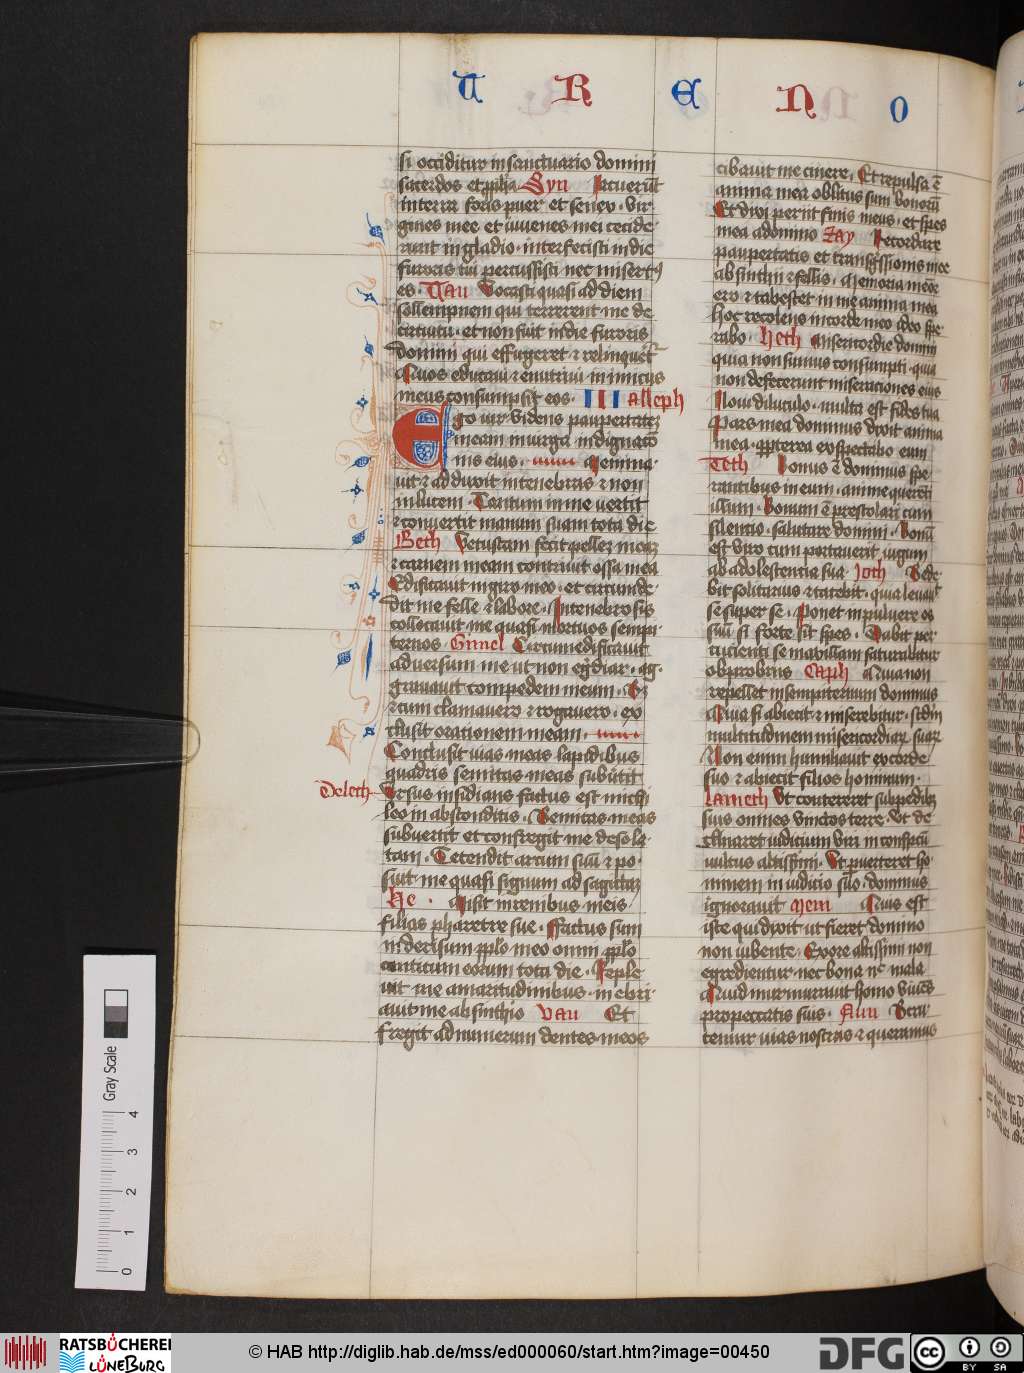 T R E N O
si occiditur in sanctuario domini
sacerdos et ppha Syn Iacuerūt
in terra foris puer et senex · vir
gines mee et iuvenes mei cecide
runt in gladio · interfecisti in die
furoris tui percussisti nec misertꝰ
es · Tau Vocasti quasi ad diem
sollempnem qui terrerent me de
circuitu · et non fuit in die furoris
domini qui effugeret ⁊ relinqueret̄
Quos educavi ⁊ enutrivi inimicus
meus consumpsit eos · III Alleph
Ego vir videns paupertatē
meam in virga indignatō
nis eius · Memina
vit ⁊ adduxit in tenebras ⁊ non
in lucem · Tantum in me vertit
⁊ convertit manum suam tota die
Beth Vetustam fecit pellē meaȝ
⁊ carnem meam contrivit ossa mea
Edificavit in giro meo · et circumde
dit me felle ⁊ labore · In tenebrosis
collocavit me quasi mortuos sempi
ternos Gimel Circumedificavit
adversum me ut non eg̅diar · ag
gravavit compedem meum · Sȝ
⁊ cum clamavero ⁊ rogavero · ex
clusit orationem meam ·
Conclusit vias meas lapidibus
quadris semitas meas subv̄tit
Deleth Ursus insidians factus est michi
leo in absconditis · Semitas meas
subvertit et confregit me desola
tam · Tetendit arcum suū ⁊ po
suit me quasi signum ad sagittaȝ
He · Misit in renibus meis
filias pharetre sue · Factus sum
in derisum pplo meo omni pplo
canticum eorum tota die · Reple
vit me amaritudinibus · inebri
avit me absinthio Vau Et
fregit ad numerum dentes meos
cibavit me cinere · Et repulsa ē
anima mea oblitus sum bonorū
Et dixi periit finis meus · et spes
mea a domino Zay Recordare
paupertatis et transg̅ssionis mee
absinthii ⁊ fellis · Memoria meōr
ero ⁊ tabescet in me anima mea
Hoc recolens in corde meo ideo spe
rabo · Heth Misericordie domini
quia non sumus consumpti · quia
non defecerunt miseraciones eius
Novi diluculo · multa est fides tua
Pars mea dominus dixit anima
mea · ꝓpterea exspectabo eum
Teth Bonus ē dominus spe
rantibus in eum · anime querēti
illum · Bonum ē prestolari cum
silencio · salutare domini · Bonū
est viro cum portaverit iugum
ab adolescentia sua Ioth Sede
bit solitarius ⁊ tacebit · quia levavit
se super se · Ponet in pulvere os
suū si forte sit spes · Dabit per
cucienti se maxillam saturabitur
obprobriis Caph Quia non
repellet in sempiternum dominus
Quia si abiecit ⁊ miserebitur · scdm
multitudinem misericordiaȝ suaȝ
Non enim humiliavit ex corde
suo ⁊ abiecit filios hominum ·
Lameth Ut contereret sub pedibȝ
suis omnes vinctos terre · Ut de
clinaret iudicium viri in conspcū
vultus altissimi · Ut ꝑverteret ho
minem in iudicio suo · dominus
ignoravit Mem Quis est
iste qui dixit ut fieret domino
non iubente · Ex ore altissimi non
egredientur · nec bona nc̄ mala
Quid murmuravit homo vivēs
pro peccatis suis · Nun Scru
temur vias nostras ⁊ queramus
Gray Scale
4
3
2
1
0
RATSBÜCHEREI
LÜNEBURG
© HAB http://diglib.hab.de/mss/ed000060/start.htm?image=00450
DFG
cc BY SA